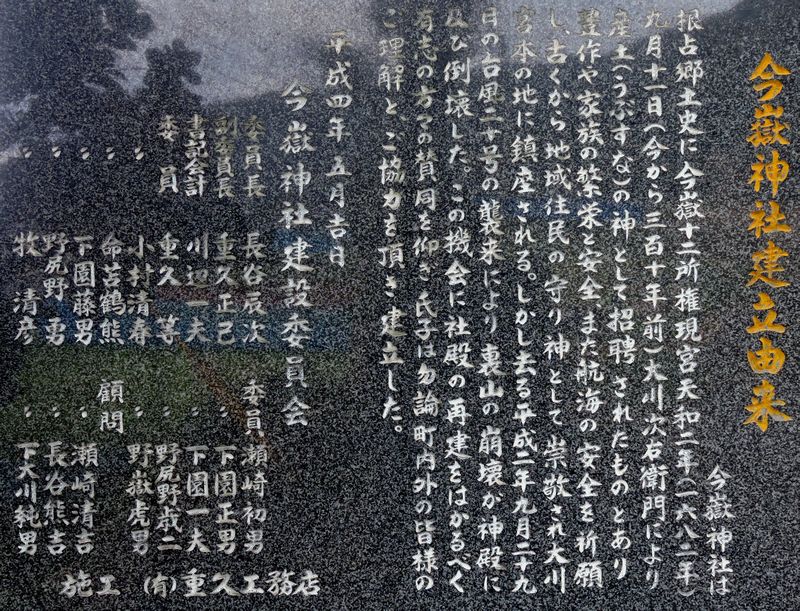 今嶽神社建立由来
今嶽神社は
根占郷土史に今嶽十二所権現宮天和二年(一六八二年)
九月十一日(今から三百十年前)大川次右衛門により
産土(うぶすな)の神として招聘されたものとあり
豊作や家族の繁栄と安全、また航海の安全を祈願
し、古くから地域住民の守り神として崇敬され大川
宮本の地に鎮産される。しかし去る平成二年九月二十九
日の台風二十号の襲来により裏山の崩壊が神殿に
及び倒壊した。この機会に社殿の再建をはかるべく
有志の方々の賛同を仰ぎ氏子は勿論町内外の皆様の
ご理解と、ご協力を頂き建立した。
平成四年五月吉日
今嶽神社建設委員会
委員長 長谷辰次
副委員長 重久正己
書記会計 川辺一夫
委員 重久等
〃 小村清春
〃 命苫鶴熊
〃 下園藤男
〃 野尻野勇
〃 牧清彦
委員 瀬崎初男
〃 下園正男
〃 下園一夫
〃 野尻野歳二
〃 野嶽虎男
顧問
〃 瀬崎清吉
〃 長谷熊吉
〃 下大川純男
施工 (有)重久工務店